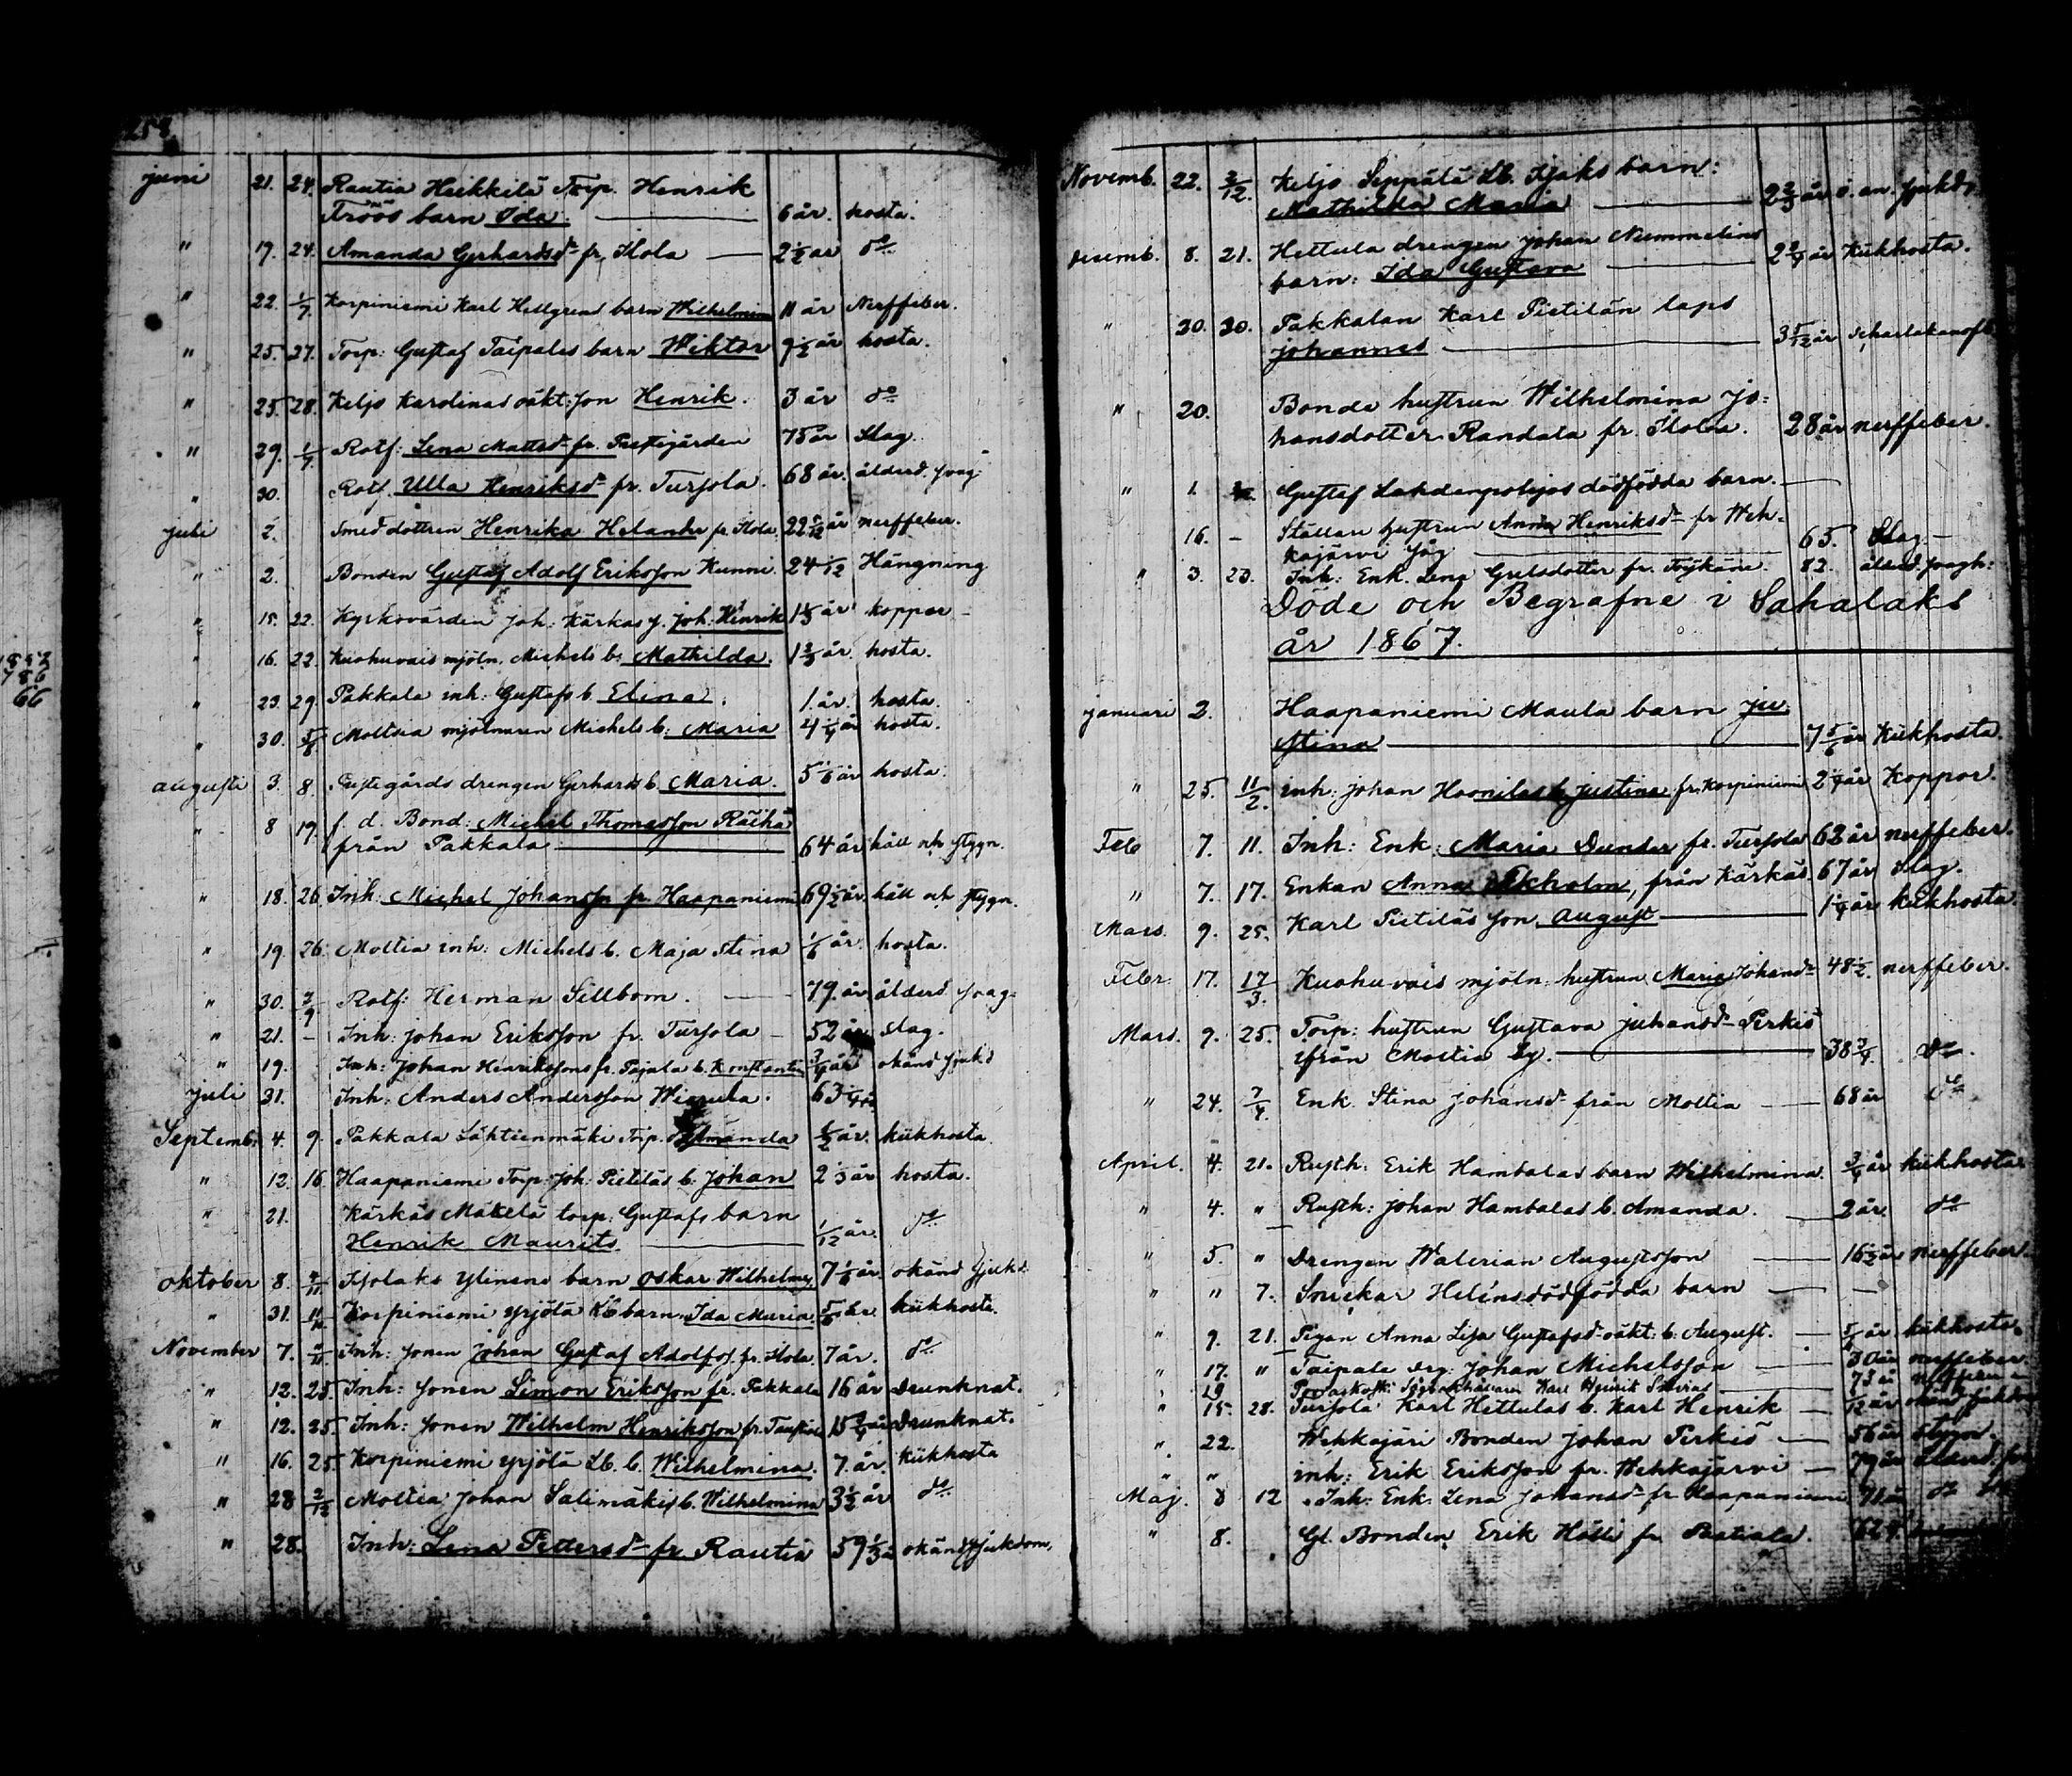 juni 21. 24. Rautia Heikkilä Torp. Henrik
Tröös barn Ida. 6 år. hosta.
" 17. 24. Amanda Gerhardsdr fr. Ilola 2 1/2 år do
" 22. 1/7. Korpiniemi Karl Hellgrens barn Wilhelmina 11 år Nerffeber.
" 25. 27. Torp: Gustaf Taipales barn Wiktor 9 1/2 år hosta.
" 25. 28. Keljo Karolinas oäkt: son Henrik. 3 år do
" 29. 1/7. Rotf: Lena Mattsdr fr. Prestgården 75 år Slag.
" 30. Rotf. Ulla Henriksdr fr. Tursola. 68 år. ålderd. svag:
juli 2. Smeddottren Henrika Helander fr. Ilola. år nerffeber.
" 2. Bonden Gustaf Adolf Eriksson Kunni. 24 1/12 Hängning
" 15. 22. Kyrkovärden Joh: Kärkas s. Joh: Henrik år koppor
" 16. 22. Kuohuvais mjöln. Michels b. Mathilda. 1 2/3 år. hosta.
" 23. 29. Pakkala inh: Gustafs b. Elina. 1. år. hosta.
" 30. 5/8 Moltia mjölnaren Michels b. Maria 4 1/4 år hosta.
augusti 3. 8. Prestegårds drengen Gerhards b. Maria. 5 1/6 år hosta.
" 8 19. f. d. Bond: Michel Thomasson Räihä
från Pakkala 64 år håll och stygn.
" 18. 26. Inh. Michel Johansson fr. Haapaniemi 69 1/2 år. håll och stygn.
" 19. 26. Moltia inh: Michels b. Maja Stina 1/6 år. hosta.
" 30. 2/9 Rotf: Herman Sillbom. 79. år ålderd svag:
" 21. - Inh: Johan Eriksson fr. Tursola - 52 år slag.
" 19. Inh: Johan Henrikssons fr. Pajala b. Konstantin 3/4 år okänd sjukd
juli 31. Inh: Anders Andersson Wierula. 63
Septemb: 4. 9. Pakkala Lähtienmäki Torp. Amanda 1/2 år. kikhosta.
" 12. 16. Haapaniemi Torp: Joh: Pietiläs b. Johan 2 1/3 år hosta.
" 21. Kärkäs Mäkelä torp: Gustafs barn
Henrik Maurits. 1/12 år. do
oktober 8. Isolaks Ylinens barn Oskar Wilhelm 7 1/6 år. okänd sjukd.
" 31. Korpiniemi Yrjölä Lb. barn Ida Maria. 5/6 år. kikhosta.
November 7. Inh: sonen Johan Gustaf Adolfss. fr. Ilola 7 år. do
" 12. 25. Inh: sonen Simon Eriksson fr. Pakkala 16 år Drunknat.
" 12. 25. Inh: sonen Wilhelm Henriksson fr. 15 3/4 år Drunknat.
" 16. 25. Korpiniemi Yrjölä Lb. b. Wilhelmina. 7. år. Kikhosta
" 28 2/12 Moltia Johan Salimäkis b. Wilhelmina 3 1/2 år do
" 28. Inh: Lena Pettersdr fr Rautia 59 1/3 å okänd sjukdom.
Novemb. 22. 2/12. Keljo Seppälä Lb. Isaks barn:
Mathilda Maria 2 2/3 år o. an. sjukd.
desemb. 8. 21. Hettula drengen Johan Nummelins
barn: Ida Gustava 2 år Kikhosta.
" 20. 30. Pakkalan Karl Pietilän laps
Johannes 3 5/12 år Scharlakansfb.
" 20. Bonde hustrun Wilhelmina Jo:
hansdotter Randala fr. Ilola. 28 år nerffeber.
" 1. Gustaf Lahdenpohjas dödfödda barn.
" 16. - Ställare hustrun Anna Henriksdr fr Weh-
kajärvi såg 65. Slag.
" 3. 23. Inh: Enk. Lena Grelsdotter fr. 82. ålderd. svagh:
Döde och Begrafne i Sahalaks
år 1867.
januari 2. Haapaniemi Maula barn Ju
stina 7 5/6 år Kikhosta.
" 25. 11/2. inh: Johan Hoonilas b. Justina fr. Korpiniemi 2 år Koppor.
Feb 7. 11. Inh: Enk: Maria Dunder fr. Tursola 62 år nerffeber.
" 7. 17. Enkan Anna Ekholm, från Kärkäs. 67 år Slag.
Mars. 9. 25. Karl Pietiläs son August 1 1/4 år kikhosta.
Febr. 17. 17/3. Kuohuvais mjöln: hustrun Maria Johansdr 48 1/2. nerffeber.
Mars. 9. 25. Torp: hustrun Gustava Juhansdr Perkiö
ifrån Moltia by. 38 3/4. do.
" 24. 7/4. Enk. Stina Johansdr från Moltia 68 år do
April. 4. 21. Rusth: Erik Hambalas barn Wilhelmina. 3/4 år kikhosta
" 4. " Rusth: Johan Hambalas b. Amanda. 2 år. do
" 5. " Drengen Walerian Augustsson 16 1/2 år nerffeber.
" " 7. Snickar Helins dödfödda barn
" 9. 21. Pigan Anna Lisa Gustafsdr oäkt: b. August. år kikhosta.
" 17. " Taipale drg: Johan Michelsson 30 år nerffeber.
" 19 Karl Henrik 73 å
" 15. 28. Tursola Karl Hettulas b. Karl Henrik år okän sjukdom
" 22. Wehkajäri Bonden Johan Perkiö 56 år stygn.
" " inh: Erik Eriksson fr. Wehkajärvi 79 år ålderd.
Maj. 8 12 Inh: Enk: Lena Johansdr fr. Haapaniemi 71 å do
" 8. Gl. Bonden Erik Hölli fr. Pactiala. 62